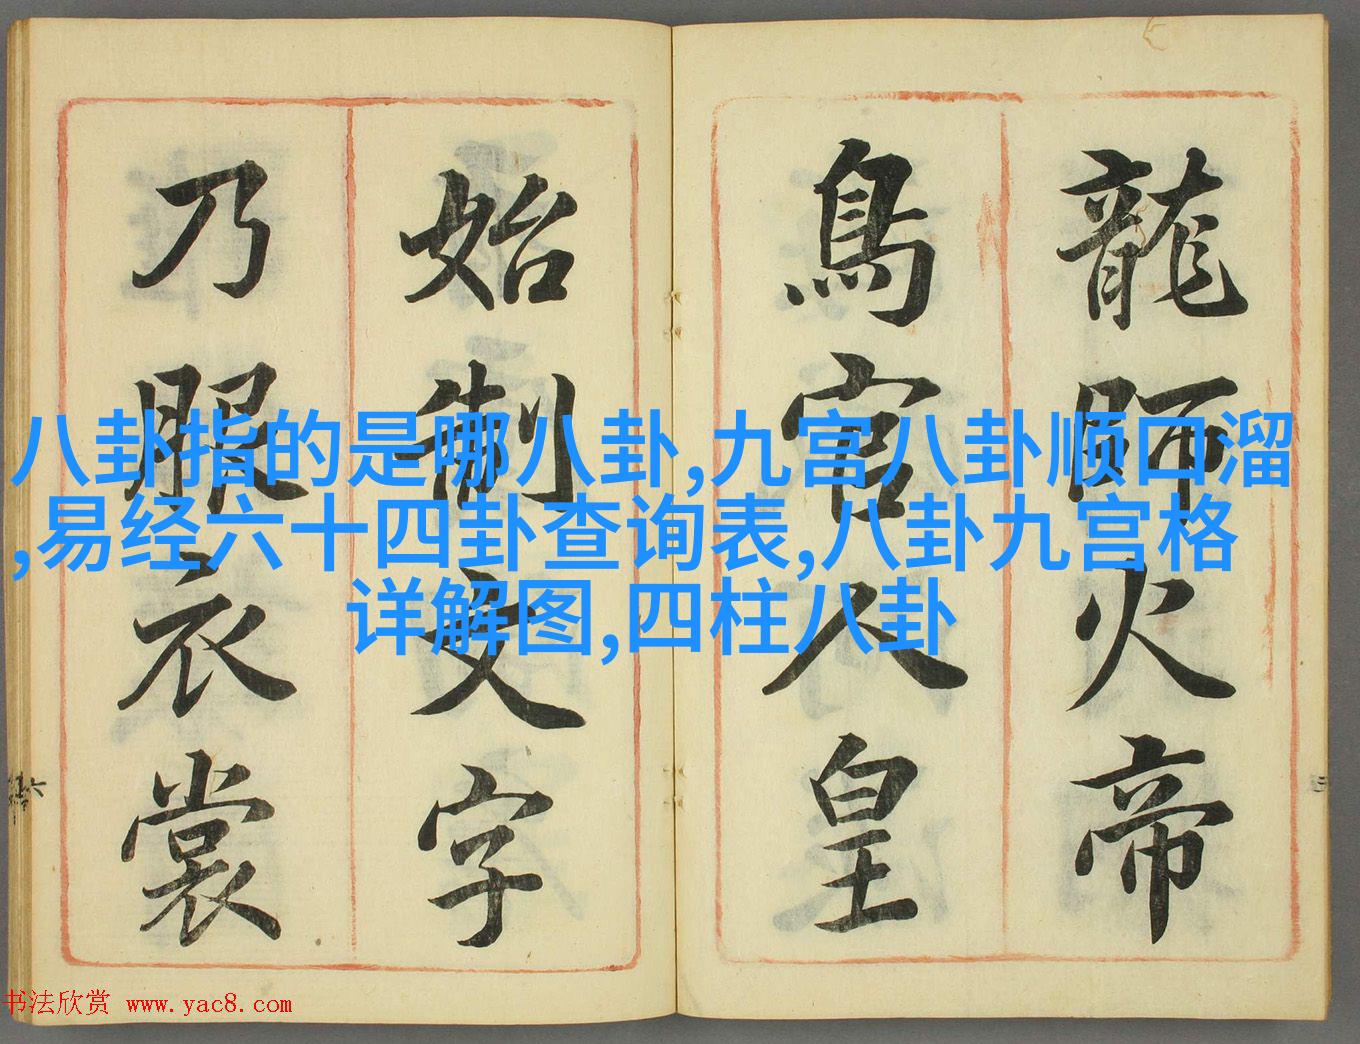 龍師火帝
鳥官人皇
始制文字
乃服衣裳
八卦指的是哪八卦,九宫八卦顺口溜
,易经六十四卦查询表,八卦九宫格
详解图,四柱八卦
书法欣赏 www.yac8.com